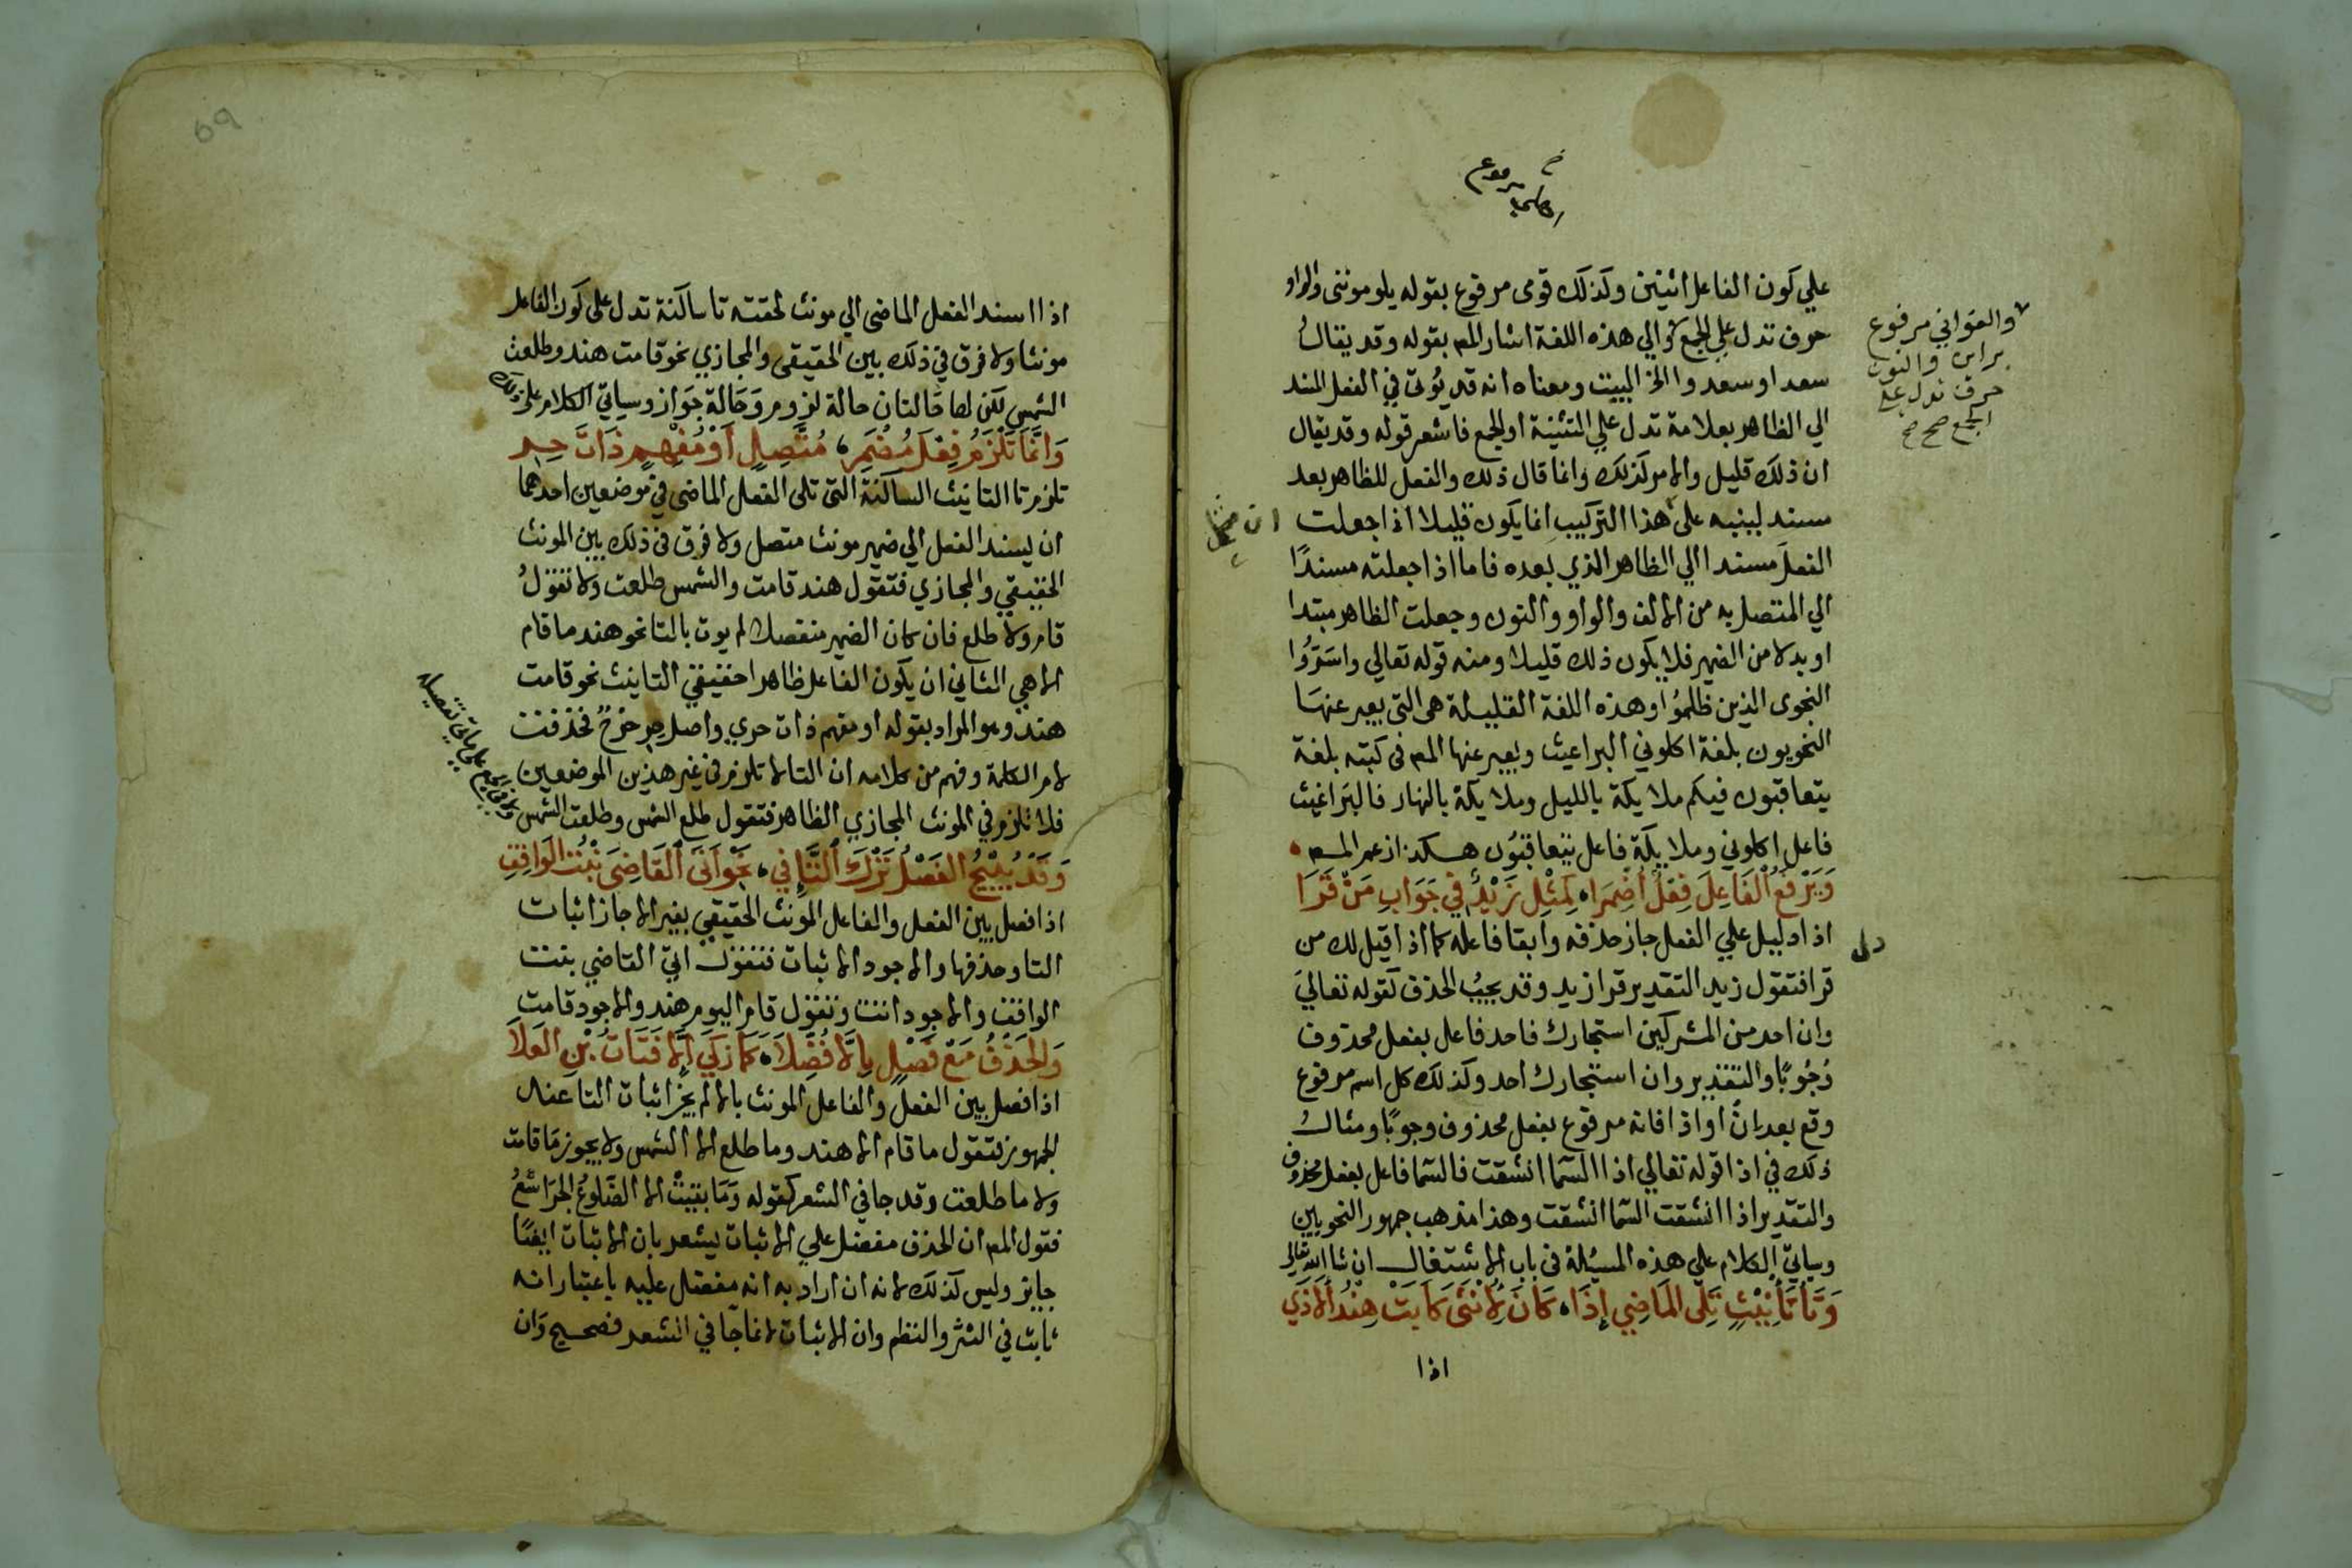 علي كون الفاعل اثنين وكذلك قومى مرفوع بقوله يلومونني والواو
حرف تدل علي الجمع والي هذه اللغة اشار المص بقوله وقد يقال
سعدا وسعدوا الخ البيت ومعناه انه قد يُوتى في الفعل المسند
الي الظاهر بعلامة تدل علي التثنية او الجمع فاشعر قوله وقد يقال
ان ذلك قليل والامر كذلك وانما قال ذلك والفعل للظاهر بعد
مسند لينبه على ان مثل هذا التركيب انما يكون قليلا اذا جعلت
الفعل مسندا الي الظاهر الذي بعده فاما اذا جعلته مسندًا
الي المتصل به من الالف والواو والنون وجعلت الظاهر مبتدا
او بدلا من الضمير فلا يكون ذلك قليلا ومنه قوله تعالي واسَرُّوا
النجوى الذين ظلمُوا وهذه اللغة القليلة هى التى يعبر عنهَا
النحويون بلغة اكلوني البراعيث ويعبر عنها المص فى كتبه بلغة
يتعاقبون فيكم ملايكة بالليل وملايكة بالنهار فالبَراغيث
فاعل اكلوني وملايكَة فاعل يتعاقبُون هكذا زعم المص
وَيَرْفَعُ الفَاعِلَ فِعْلٌ أُضْمِرَا كَمِثْلِ زَيْدٌ فِي جَوَابِ مَنْ قَرَا
اذا دل دليل علي الفعل جاز حذفه وابقا فاعله كما اذا قيل لك من
قرا فتقول زيد التقدير قرا زيد وقد يجبُ الحذف كقوله تعاليَ
وان احد من المشركين استجارك فاحد فاعل بفعل محذوف
وُجُوبًا والتقدير وان استجارك احد وكذلك كل اسم مرفوع
وقع بعد انْ او اذا فانه مرفوع بفعل محذوف وجوبًا ومثالُ
ذلك في اذا قوله تعالي اذا السّما انشقت فالسّما فاعل بفعل محذوف
والتقدير اذا انشقت السّما انشقت وهذا مذهب جمهور النحويين
وسياتي الكلام علي هذه المسئلة فى باب الاشتغال ان شا الله تعالى
وَتَا تَأنِيْثٍ تَلِى المَاضِي إِذَا كَانَ لِأُنْثَى كَأَبَتْ هِنْدُ الأَذَي
اذا
والغواني مرفوع
براين والنون
حرف تدل على
الجمع صح صح
اذا اسند الفعل الماضى الي مونث لحقته تا ساكنة تدل على كون الفاعل
مونثا ولا فرق في ذلك بين الحقيقى والمجازي نحو قامت هند وطلعت
الشمس لكن لها حَالتان حالة لزوم وَحَالة جَواز وسياتي الكلام على ذلك
وَإِنَّمَا تَلْزَمُ فِعْلَ مُضْمَرِ مُتَّصِلٍ أَوْ مُفْهِمٍ ذَاتَ حِرِ
تلزم تا التانيث الساكنة التى تلى الفعل الماضى في موضعين احدهما
ان يسند الفعل الي ضمير مونث متصل ولا فرق فى ذلك بين المونث
الحقيقي والمجازي فتقول هند قامت والشمس طلعت ولا تقولُ
قام ولا طلع فان كان الضمير منفصلا لم يوت بالتا نحو هند ما قام
الا هي الثاني ان يكون الفاعل ظاهرا حقيقي التانيث نحو قامت
هند وهو المراد بقوله او مفهم ذات حري واصل حر حرح فحذفت
لام الكلمة وفهم من كلامه ان التا لا تلزم فى غير هذين الموضعين
فلا تلزم في المونث المجازي الظاهر فتقول طلع الشمس وطلعت الشمس
وَقَدْ يُبِيْحُ الفَصْلُ تَرْكَ التَّاءِ فِي نَحْوِ أَتَى القَاضِىَ بِنْتُ الوَاقِفِ
اذا فصل بين الفعل والفاعل المونث الحقيقي بغير الا جاز اثبات
التا وحذفها والاجود الاثبات فتقول اتي القاضي بنت
الواقف والاجود اتت وتقول قام اليوم هند والاجود قامت
وَالحَذْفُ مَعْ فَصْلٍ بِإِلَّا فُضِّلَا كَمَا زَكَي إِلَّا فَتَاةُ بْنِ العَلَا
اذا فصل بين الفعل والفاعل المونث بالا لم يجز اثبات التا عند
الجمهور فتقول ما قام الا هند وما طلع الا الشمس ولا يجوز مَا قامت
ولا ما طلعت وقد جا في الشعر كقوله وَمَا بقيتْ الا الضّلوعُ الجرَاشعُ
فقول المص ان الحذف مفضل علي الاثبات يشعر بان الاثبات ايضًا
جايز وليس كذلك لانه ان اراد به انه مفضل عليه باعتبار انه
ثابت في النثر والنظم وان الاثبات انما جا في الشعر فصحيح وَان